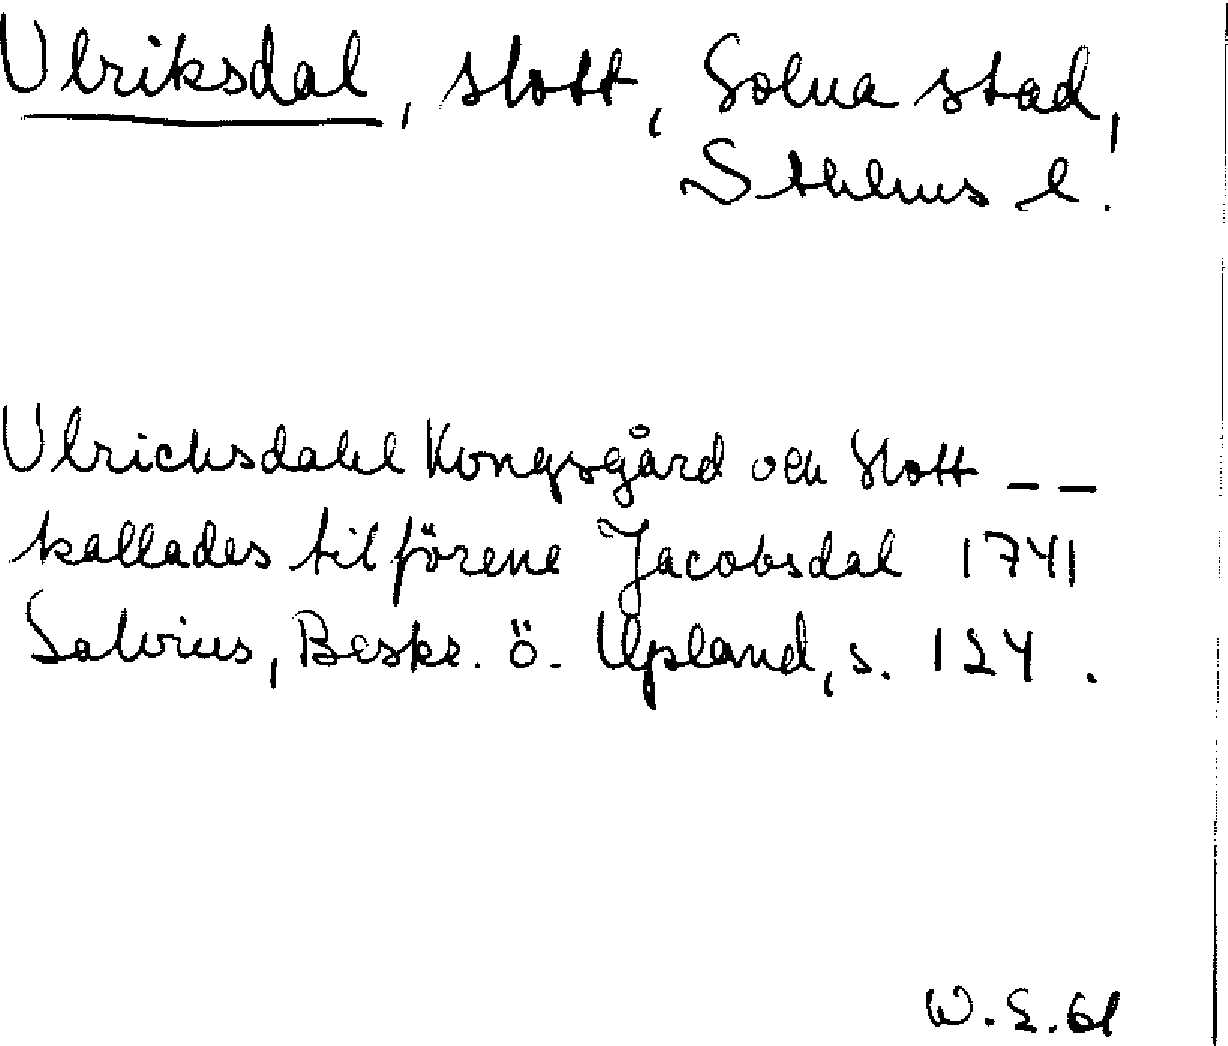 Ulriksdal, slott, Solna stad,
Sthlms l.
Ulrichsdahl Kongsgård och Slott _ _
kallades tilförene Jacobsdal 1741
Salvius, Beskr. ö. Upland, s. 124.
W. E. 61